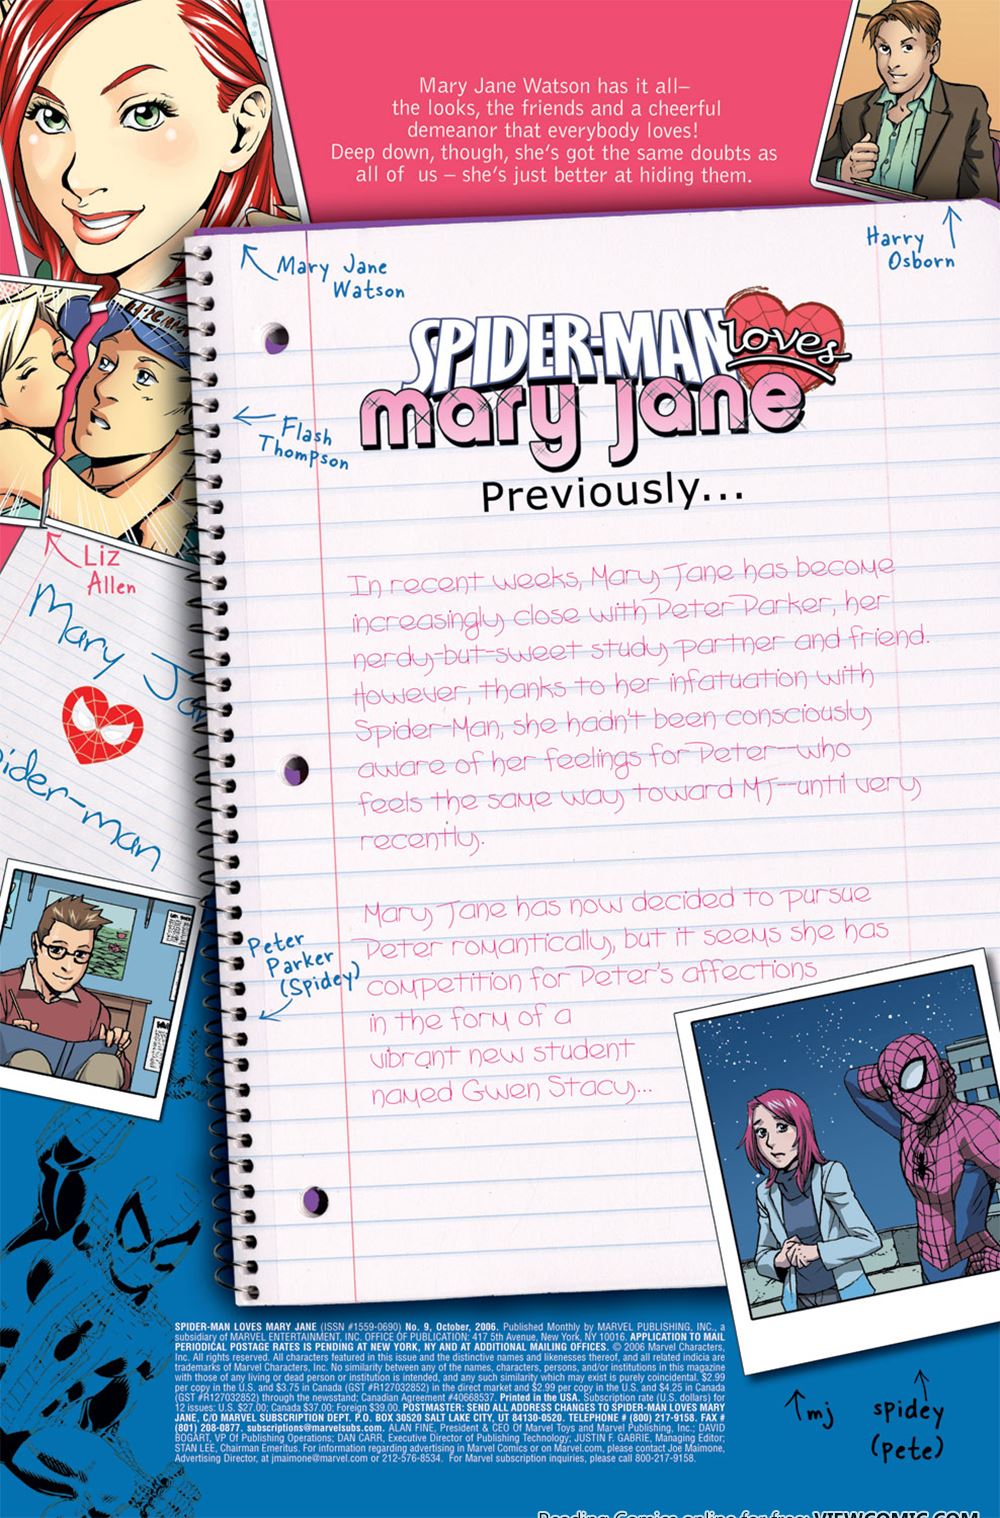 Mary Jane Watson has it all–
the looks, the friends and a cheerful
demeanor that everybody loves!
Deep down, though, she's got the same doubts as
all of us – she's just better at hiding them.
Mary Jane
Watson
Harry
Osborn
SPIDER-MAN loves
mary jane
Flash
Thompson
Previously...
Liz
Allen
In recent weeks, Mary Jane has become
increasingly close with Peter Parker, her
nerdy-but-sweet study partner and friend.
However, thanks to her infatuation with
Spider-Man, she hadn't been consciously
aware of her feelings for Peter--who
feels the same way toward MJ--until very
recently.
Mary Jan
ider-man
Mary Jane has now decided to pursue
Peter romantically, but it seems she has
competition for Peter's affections
in the form of a
vibrant new student
named Gwen Stacy...
Peter
Parker
(Spidey)
SPIDER-MAN LOVES MARY JANE (ISSN #1559-0690) No. 9, October, 2006. Published Monthly by MARVEL PUBLISHING, INC., a
subsidiary of MARVEL ENTERTAINMENT, INC. OFFICE OF PUBLICATION: 417 5th Avenue, New York, NY 10016. APPLICATION TO MAIL
PERIODICAL POSTAGE RATES IS PENDING AT NEW YORK, NY AND AT ADDITIONAL MAILING OFFICES. © 2006 Marvel Characters,
Inc. All rights reserved. All characters featured in this issue and the distinctive names and likenesses thereof, and all related indicia are
trademarks of Marvel Characters, Inc. No similarity between any of the names, characters, persons, and/or institutions in this magazine
with those of any living or dead person or institution is intended, and any such similarity which may exist is purely coincidental. $2.99
per copy in the U.S. and $3.75 in Canada (GST #R127032852) in the direct market and $2.99 per copy in the U.S. and $4.25 in Canada
(GST #R127032852) through the newsstand; Canadian Agreement #40668537. Printed in the USA. Subscription rate (U.S. dollars) for
12 issues: U.S. $27.00; Canada $37.00; Foreign $39.00. POSTMASTER: SEND ALL ADDRESS CHANGES TO SPIDER-MAN LOVES MARY
JANE, C/O MARVEL SUBSCRIPTION DEPT. P.O. BOX 30520 SALT LAKE CITY, UT 84130-0520. TELEPHONE # (800) 217-9158. FAX #
(801) 208-0877. subscriptions@marvelsubs.com. ALAN FINE, President & CEO Of Marvel Toys and Marvel Publishing, Inc.; DAVID
BOGART, VP Of Publishing Operations; DAN CARR, Executive Director of Publishing Technology; JUSTIN F. GABRIE, Managing Editor;
STAN LEE, Chairman Emeritus. For information regarding advertising in Marvel Comics or on Marvel.com, please contact Joe Maimone,
Advertising Director, at jmaimone@marvel.com or 212-576-8534. For Marvel subscription inquiries, please call 800-217-9158.
mj
spidey
(pete)
Reading Comics online for free: VIEWCOMIC.COM